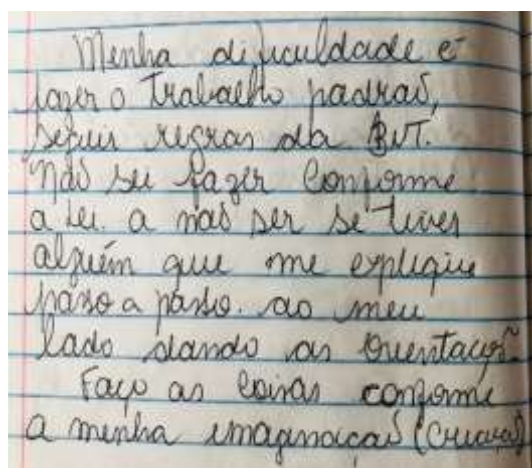 Minha dificuldade é
fazer o trabalho padrão,
seguir regras da
Não sei fazer conforme
a lei. a não ser se tiver
alguém que me explique
passo a passo. ao meu
lado dando as orientaçõ
Faço as coisas conforme
a minha imaginação (criação)